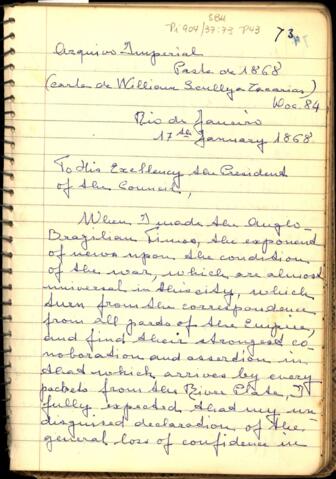 SBH
Pi 904/37-73 P43
73
Arquivo Imperial
Pasta de 1868
(carta de William Scully a Zacarias)
Doc. 84
Rio de Janeiro
17th January 1868
To His Exellency the President
of the Council,
When I made the Anglo-
Brazilian Times, the exponent
of news upon the condition
of the war, which are almost
universal in this city, which
turn from the correspondence
from all parts of the Empire,
and find their strongest co-
noboration and assertion in
that which arrives by every
packets from the River Plate, I
fully expected that my un-
disguised declaration of the
general loss of confidence in